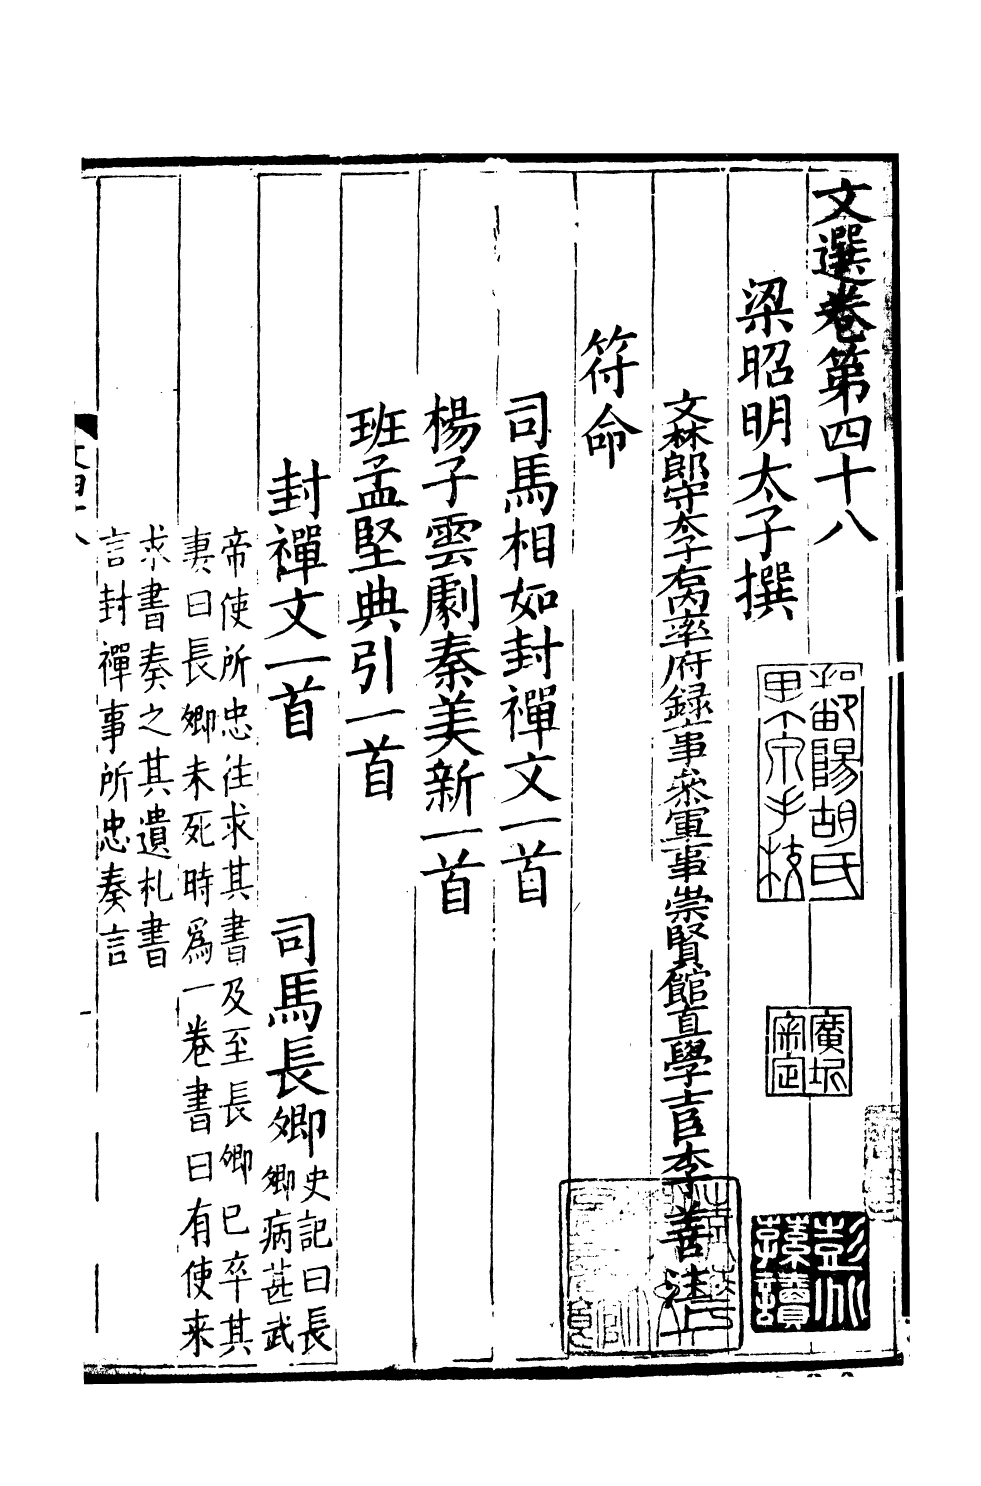 文選卷第四十八
梁昭明太子撰
鄱陽胡氏
廣圻
審定
彭兆
蓀讀
文林郎守太子右内率府録事參軍事崇賢館直學士臣李善注上
符命
司馬相如封禪文一首
楊子雲劇秦美新一首
班孟堅典引一首
封禪文一首　司馬長卿
史記曰長
卿病甚武
帝使所忠往求其書及至長卿已卒其
妻曰長卿未死時爲一卷書曰有使来
求書奏之其遺札書
言封禪事所忠奏言